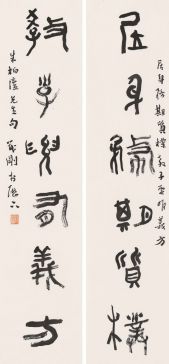 居身務期質樸
教子要有義方
居身務期質樸教子要有義方
朱柏廬先生句